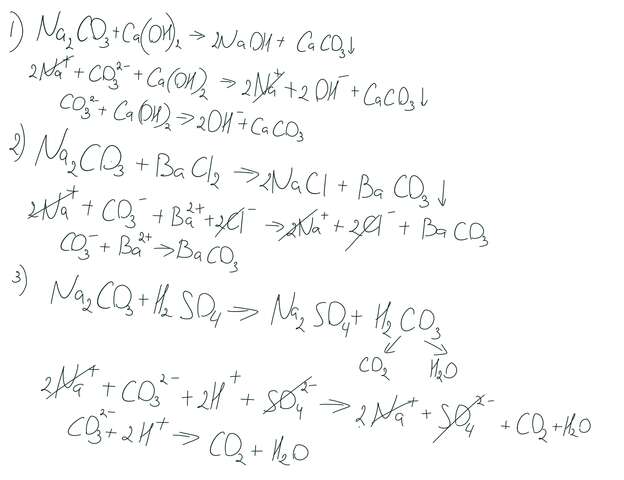 1) Na₂CO₃+Ca(OH)₂ → 2NaOH + CaCO₃↓
2Na⁺ + CO₃²⁻ + Ca(OH)₂ → 2Na⁺ + 2OH⁻ + CaCO₃↓
CO₃²⁻ + Ca(OH)₂ → 2OH⁻ + CaCO₃
2) Na₂CO₃ + BaCl₂ → 2NaCl + BaCO₃↓
2Na⁺ + CO₃⁻ + Ba²⁺ + 2Cl⁻ → 2Na⁺ + 2Cl⁻ + BaCO₃
CO₃⁻ + Ba²⁺ → BaCO₃
3) Na₂CO₃ + H₂SO₄ → Na₂SO₄ + H₂CO₃
CO₂ H₂O
2Na⁺ + CO₃²⁻ + 2H⁺ + SO₄²⁻ → 2Na⁺ + SO₄²⁻ + CO₂ + H₂O
CO₃²⁻ + 2H⁺ → CO₂ + H₂O